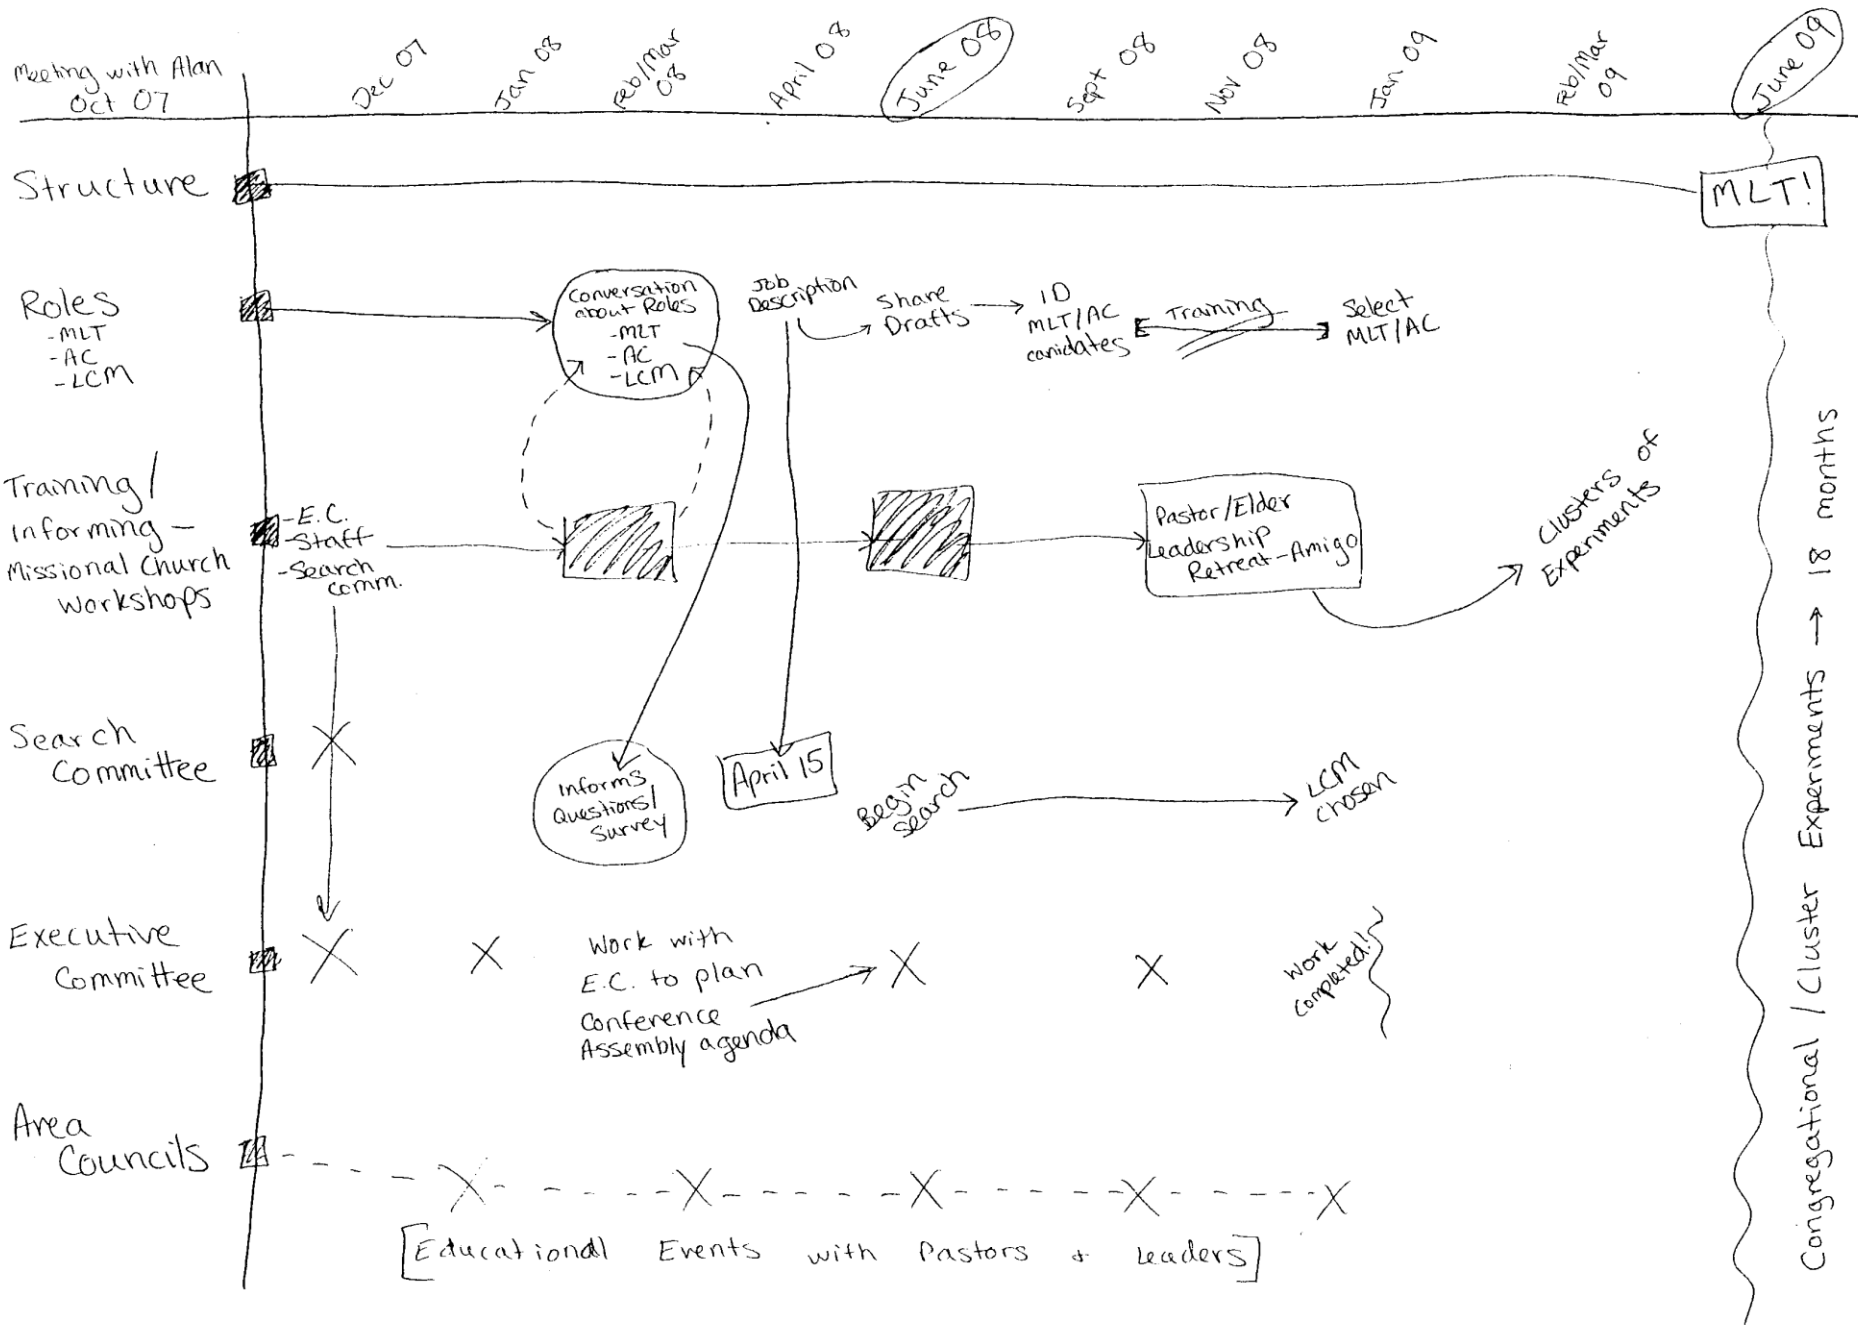 Meeting with Alan
Oct 07
Dec 07
Jan 08
Feb/Mar
08
April 08
June 08
Sept 08
Nov 08
Jan 09
Feb/Mar
09
June 09
Structure
MLT!
Roles
-MLT
-AC
-LCM
Conversation
about Roles
-MLT
-AC
-LCM
Job
Description
Share
Drafts
ID
MLT/AC
canidates
Training
Select
MLT/AC
Training/
Informing -
Missional Church
Workshops
-E.C.
-Staff
-Search
comm.
Pastor/Elder
Leadership
Retreat-Amigo
Clusters of
Experiments
Search
Committee
Informs
Questions/
Survey
April 15
Begin
Search
LCM
chosen
Executive
Committee
Work with
E.C. to plan
Conference
Assembly agenda
Work
Completed!
Area
Councils
[Educational Events with Pastors + Leaders]
Congregational / Cluster Experiments → 18 months